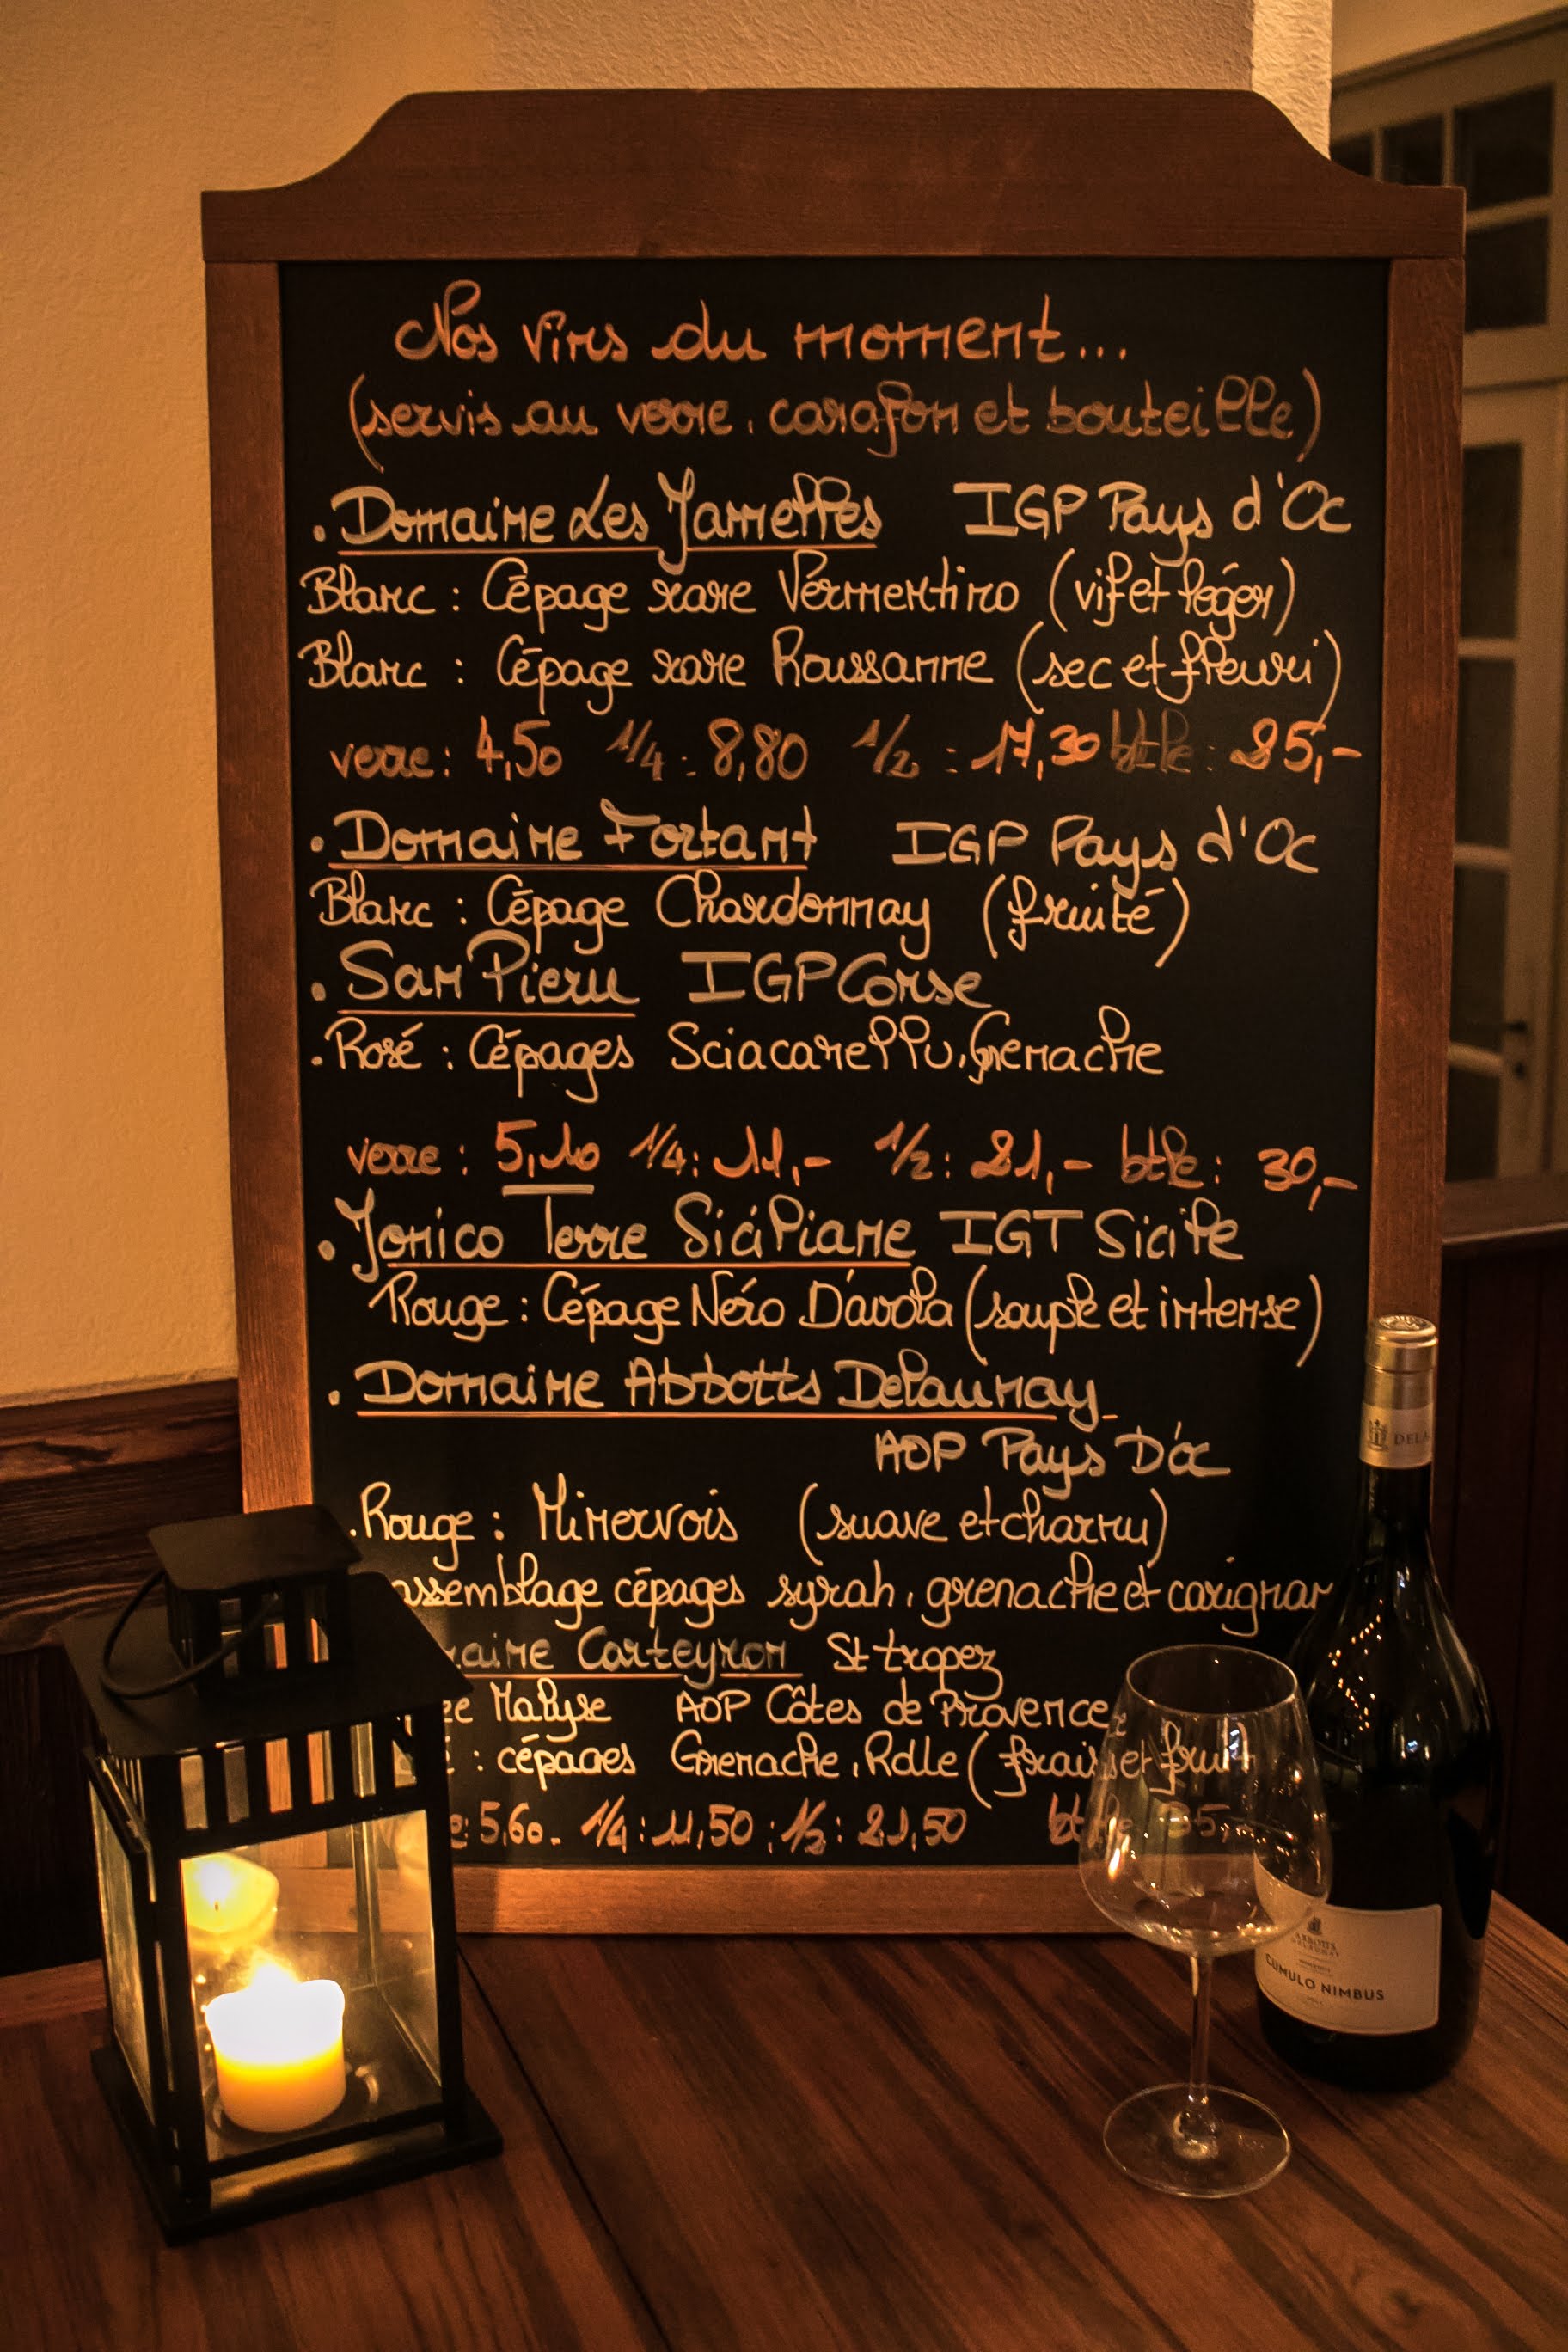 Nos vins du moment...
(servis au verre, carafon et bouteille)
. Domaine Les Jamelles IGP Pays d'Oc
Blanc : Cépage rare Vérmentino (vif et léger)
Blanc : Cépage rare Roussanne (sec et fleuri)
verre : 4,50 1/4 : 8,80 1/2 : 17,30 btle : 25,-
. Domaine Fortant IGP Pays d'Oc
Blanc : Cépage Chardonnay (fruité)
. San Pieru IGP Corse
. Rosé : Cépages Sciacarellu, Grenache
verre : 5,10 1/4 : 11,- 1/2 : 21,- btle : 30,-
. Jonico Terre Siciliane IGT Sicile
Rouge : Cépage Néro D'avola (souple et intense)
. Domaine Abbotts Delaunay
AOP Pays D'oc
. Rouge : Minervois (suave et charnu)
assemblage cépages syrah, grenache et carignan
aine Carteyron St tropez
Malyse AOP Côtes de Provence
: cépages Grenache, Rolle (frais et fruit
5,60. 1/4 : 11,50 ; 1/2 : 21,50 btle 35,-
DELA
ABBOTTS
DELAUNAY
CUMULO NIMBUS